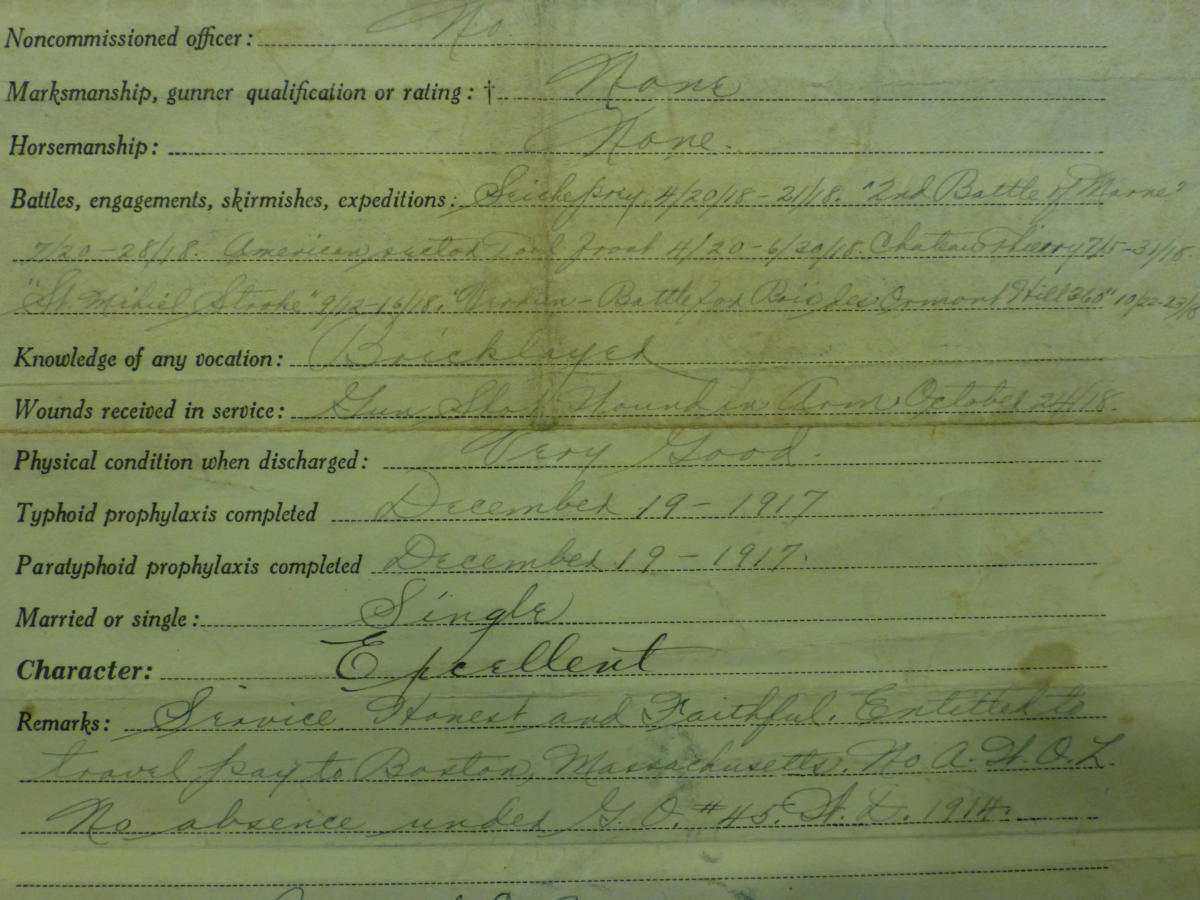 Noncommissioned officer: No.
Marksmanship, gunner qualification or rating: † None
Horsemanship: None.
Battles, engagements, skirmishes, expeditions: Seicheprey 4/20/18 - 21/18. "2nd Battle of Marne"
7/20-28/18. American sector Toul front 4/20-6/20/18. Chateau Thierry 7/15-31/18.
"St. Mihiel Stroke" 9/12-16/18. "Verdun - Battle for Bois des Ormont Hill 360" 10/22-23/18
Knowledge of any vocation: Bricklayer
Wounds received in service: Gun Shot Wound in Arm October 24/18.
Physical condition when discharged: Very Good.
Typhoid prophylaxis completed December 19 - 1917
Paratyphoid prophylaxis completed December 19 - 1917.
Married or single: Single
Character: Excellent
Remarks: Service Honest and Faithful. Entitled to
travel pay to Boston, Massachusetts. No A.W.O.L.
No absence under G.O. #45. W.D. 1914.